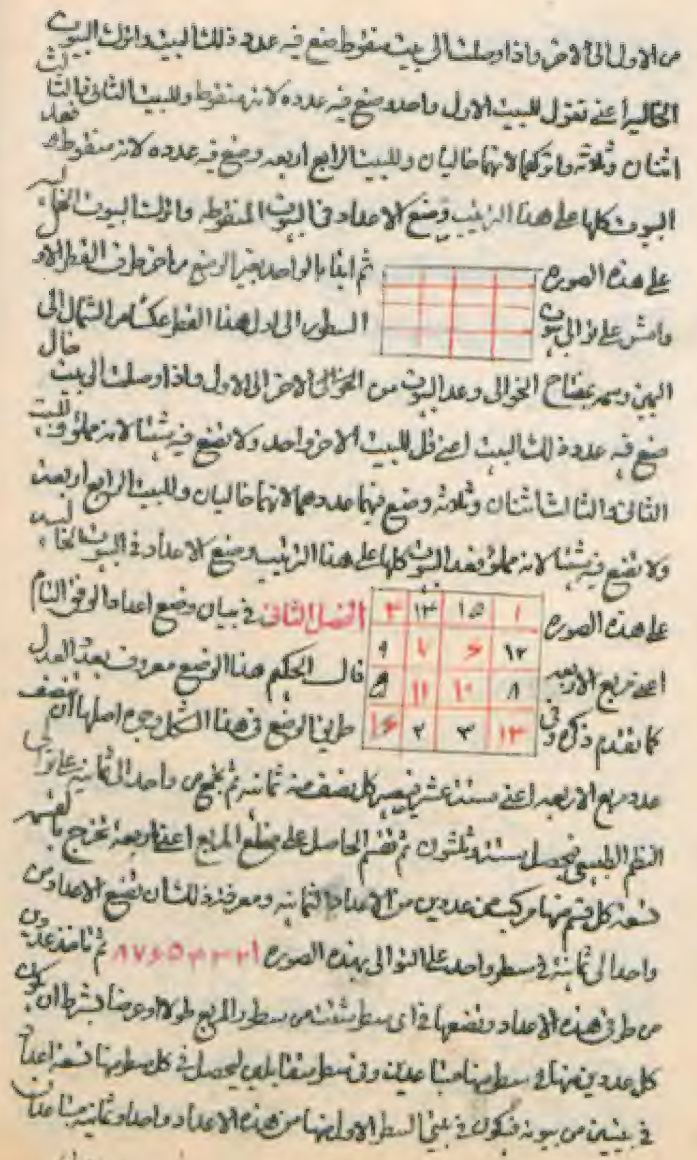 من الاول الى الاخر واذا وصلت الى بيت منقوط ضع فيه عدد ذلك البيت واترك البيوت
الخالية اعنى تقول للبيت الاول واحد وضع فيه عدده لانه منقوط وللبيت الثانى والثالث
اثنان وثلاثة واتركهما لانهما خاليان وللبيت الرابع اربعه وضع فيه عدده لانه منقوط
البيوت كلها على هذا الترتيب وضع الاعداد فى البيوت المنقوطه واترك البيوت الخاليه
على هذه الصورة ثم ابتداء بالواحد بغير الوضع من اخر طرف القطر الاول
وامش على توالى بيوت السطور الى اول هذا القطر عكسا من الشمال الى
اليمين وسم بمفتاح الخوالى وعد البيوت من الاخر الى الاول واذا وصلت الى بيت خال
ضع فيه عدد ذلك البيت اعنى قل للبيت الاخر واحد ولا تضع فيه شيئا لانه مملو وللبيت
الثانى والثالث اثنان وثلاثة وضع فيهما عددهما لانهما خاليان وللبيت الرابع اربعة
ولا تضع فيه شيئا لانه مملو فعد البيوت كلها على هذا الترتيب وضع الاعداد فى البيوت الخاليه
على هذه الصورة
١ ١٥ ١٤ ٤
١٢ ٦ ٧ ٩
٨ ١٠ ١١ ٥
١٣ ٣ ٢ ١٦
الفصل الثانى فى بيان وضع اعداد الوفق التام
اعنى مربع الاربعه قال الحكيم هذا الوضع معروف بعد العدل
كما تقدم ذكره وفى طريق الوضع فى هذا الشكل وجوه اصلها ان تنصف
عدد مربع الاربعه اعنى ستة عشر فيصير كل نصف منه ثمانيه ثم تجمع من واحد الى ثمانيه على توالى
النظم الطبيعى فيحصل ستة وثلثون ثم تقسم الحاصل على ضلع المربع اعنى اربعة تخرج بالقسمة
تسعة كل قسم منها مركب من عددين من الاعداد الثمانيه ومعرفة ذلك ان تضع الاعداد من
واحد الى ثمانية فى سطر واحد على التوالى بهذه الصورة ١ ٢ ٣ ٤ ٥ ٦ ٧ ٨ ثم تاخذ عددين
من طرفى هذه الاعداد وتضعها فى اى سطر شئت من سطور المربع طولا او عرضا بشرط ان يكون
كل عددين منها فى سطر منها وفى سطر مقابله ليحصل فى كل سطر منها تسعة
فى بيتين من بيوته فيكون فى بيتى السطر الاول منها من هذه الاعداد واحد وثمانية